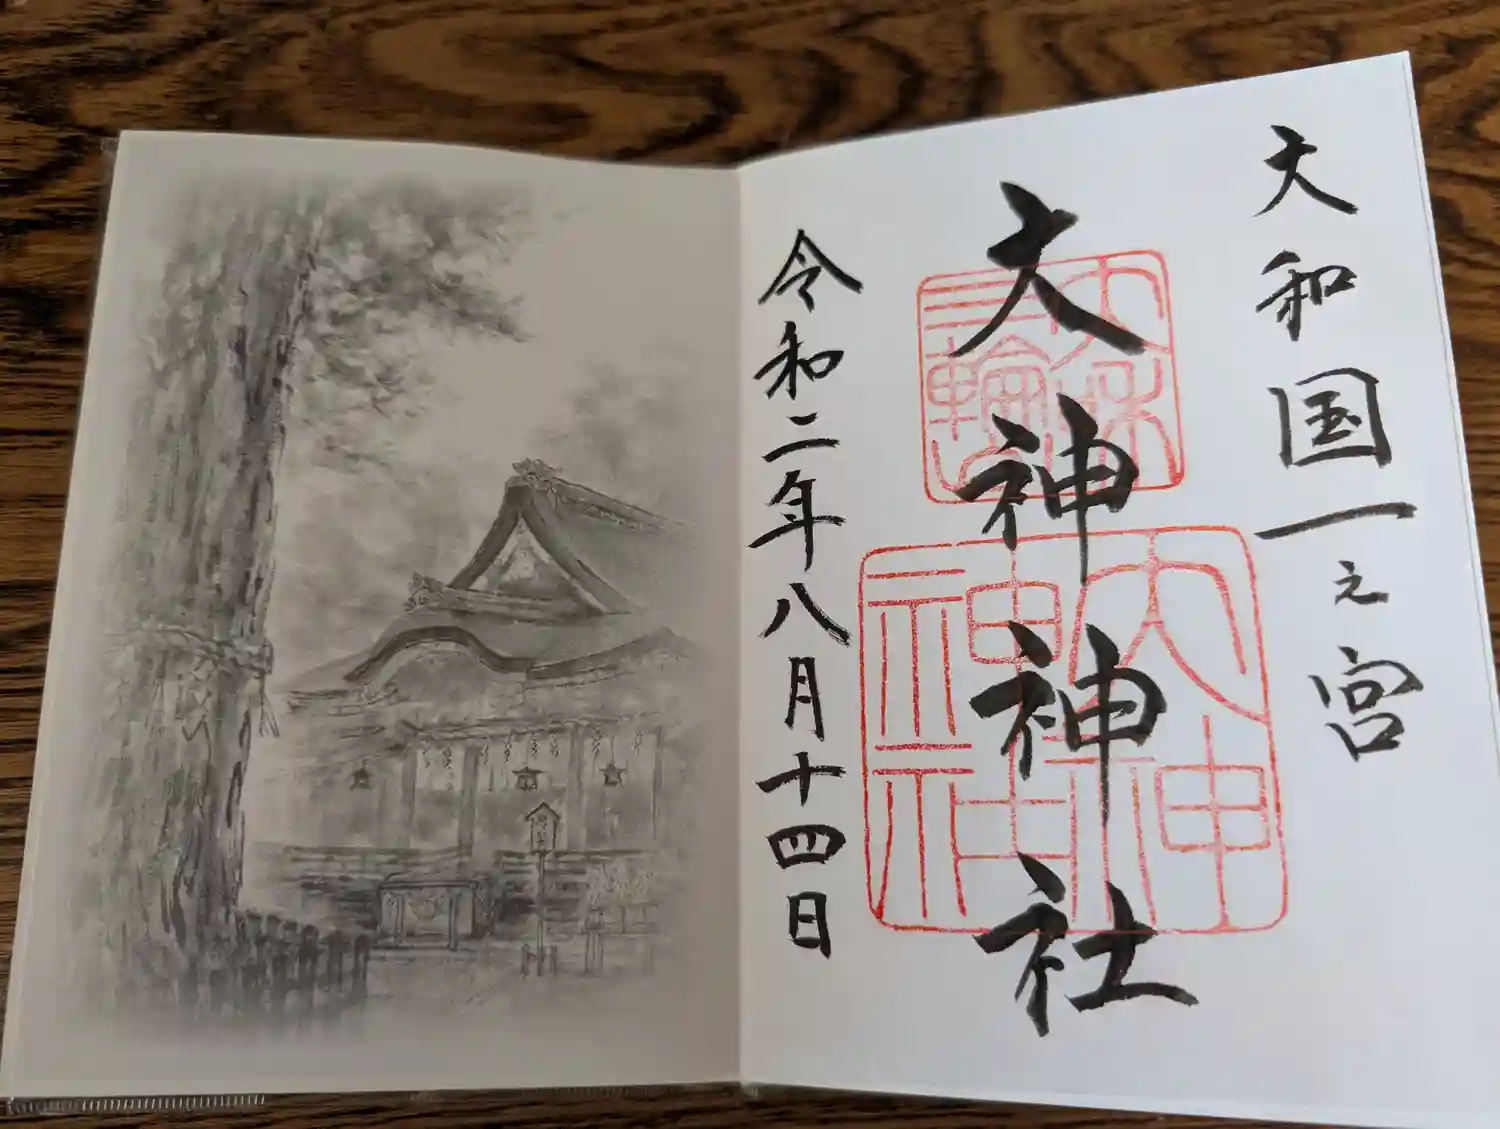 大和国一之宮
大神神社
三輪
大神神社
令和二年八月十四日